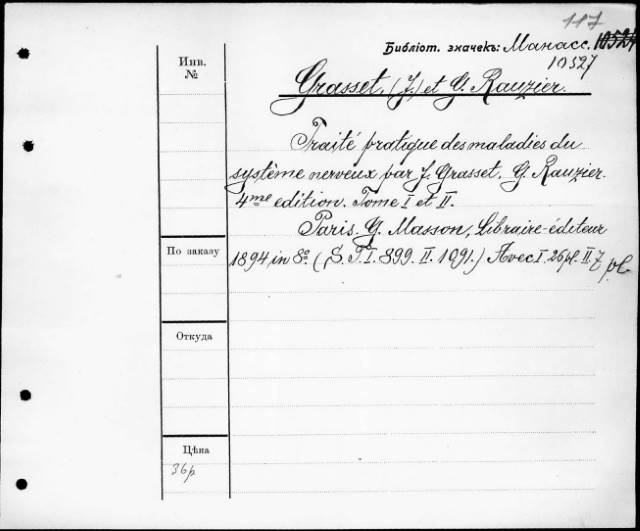 117
Библіот. значекъ: Манасс. 10524
10527
Инв.
№
Grasset, (J.) et G. Rauzier.
Traité pratique des maladies du
système nerveux par J. Grasset. G. Rauzier.
4me edition. Tome I et II.
Paris. G. Masson, Libraire-éditeur
По заказу
1894 in 8º. (S. T. I. 899. II. 1091.) Avec I. 26 pl. II. 7 pl.
Откуда
Цѣна
36р